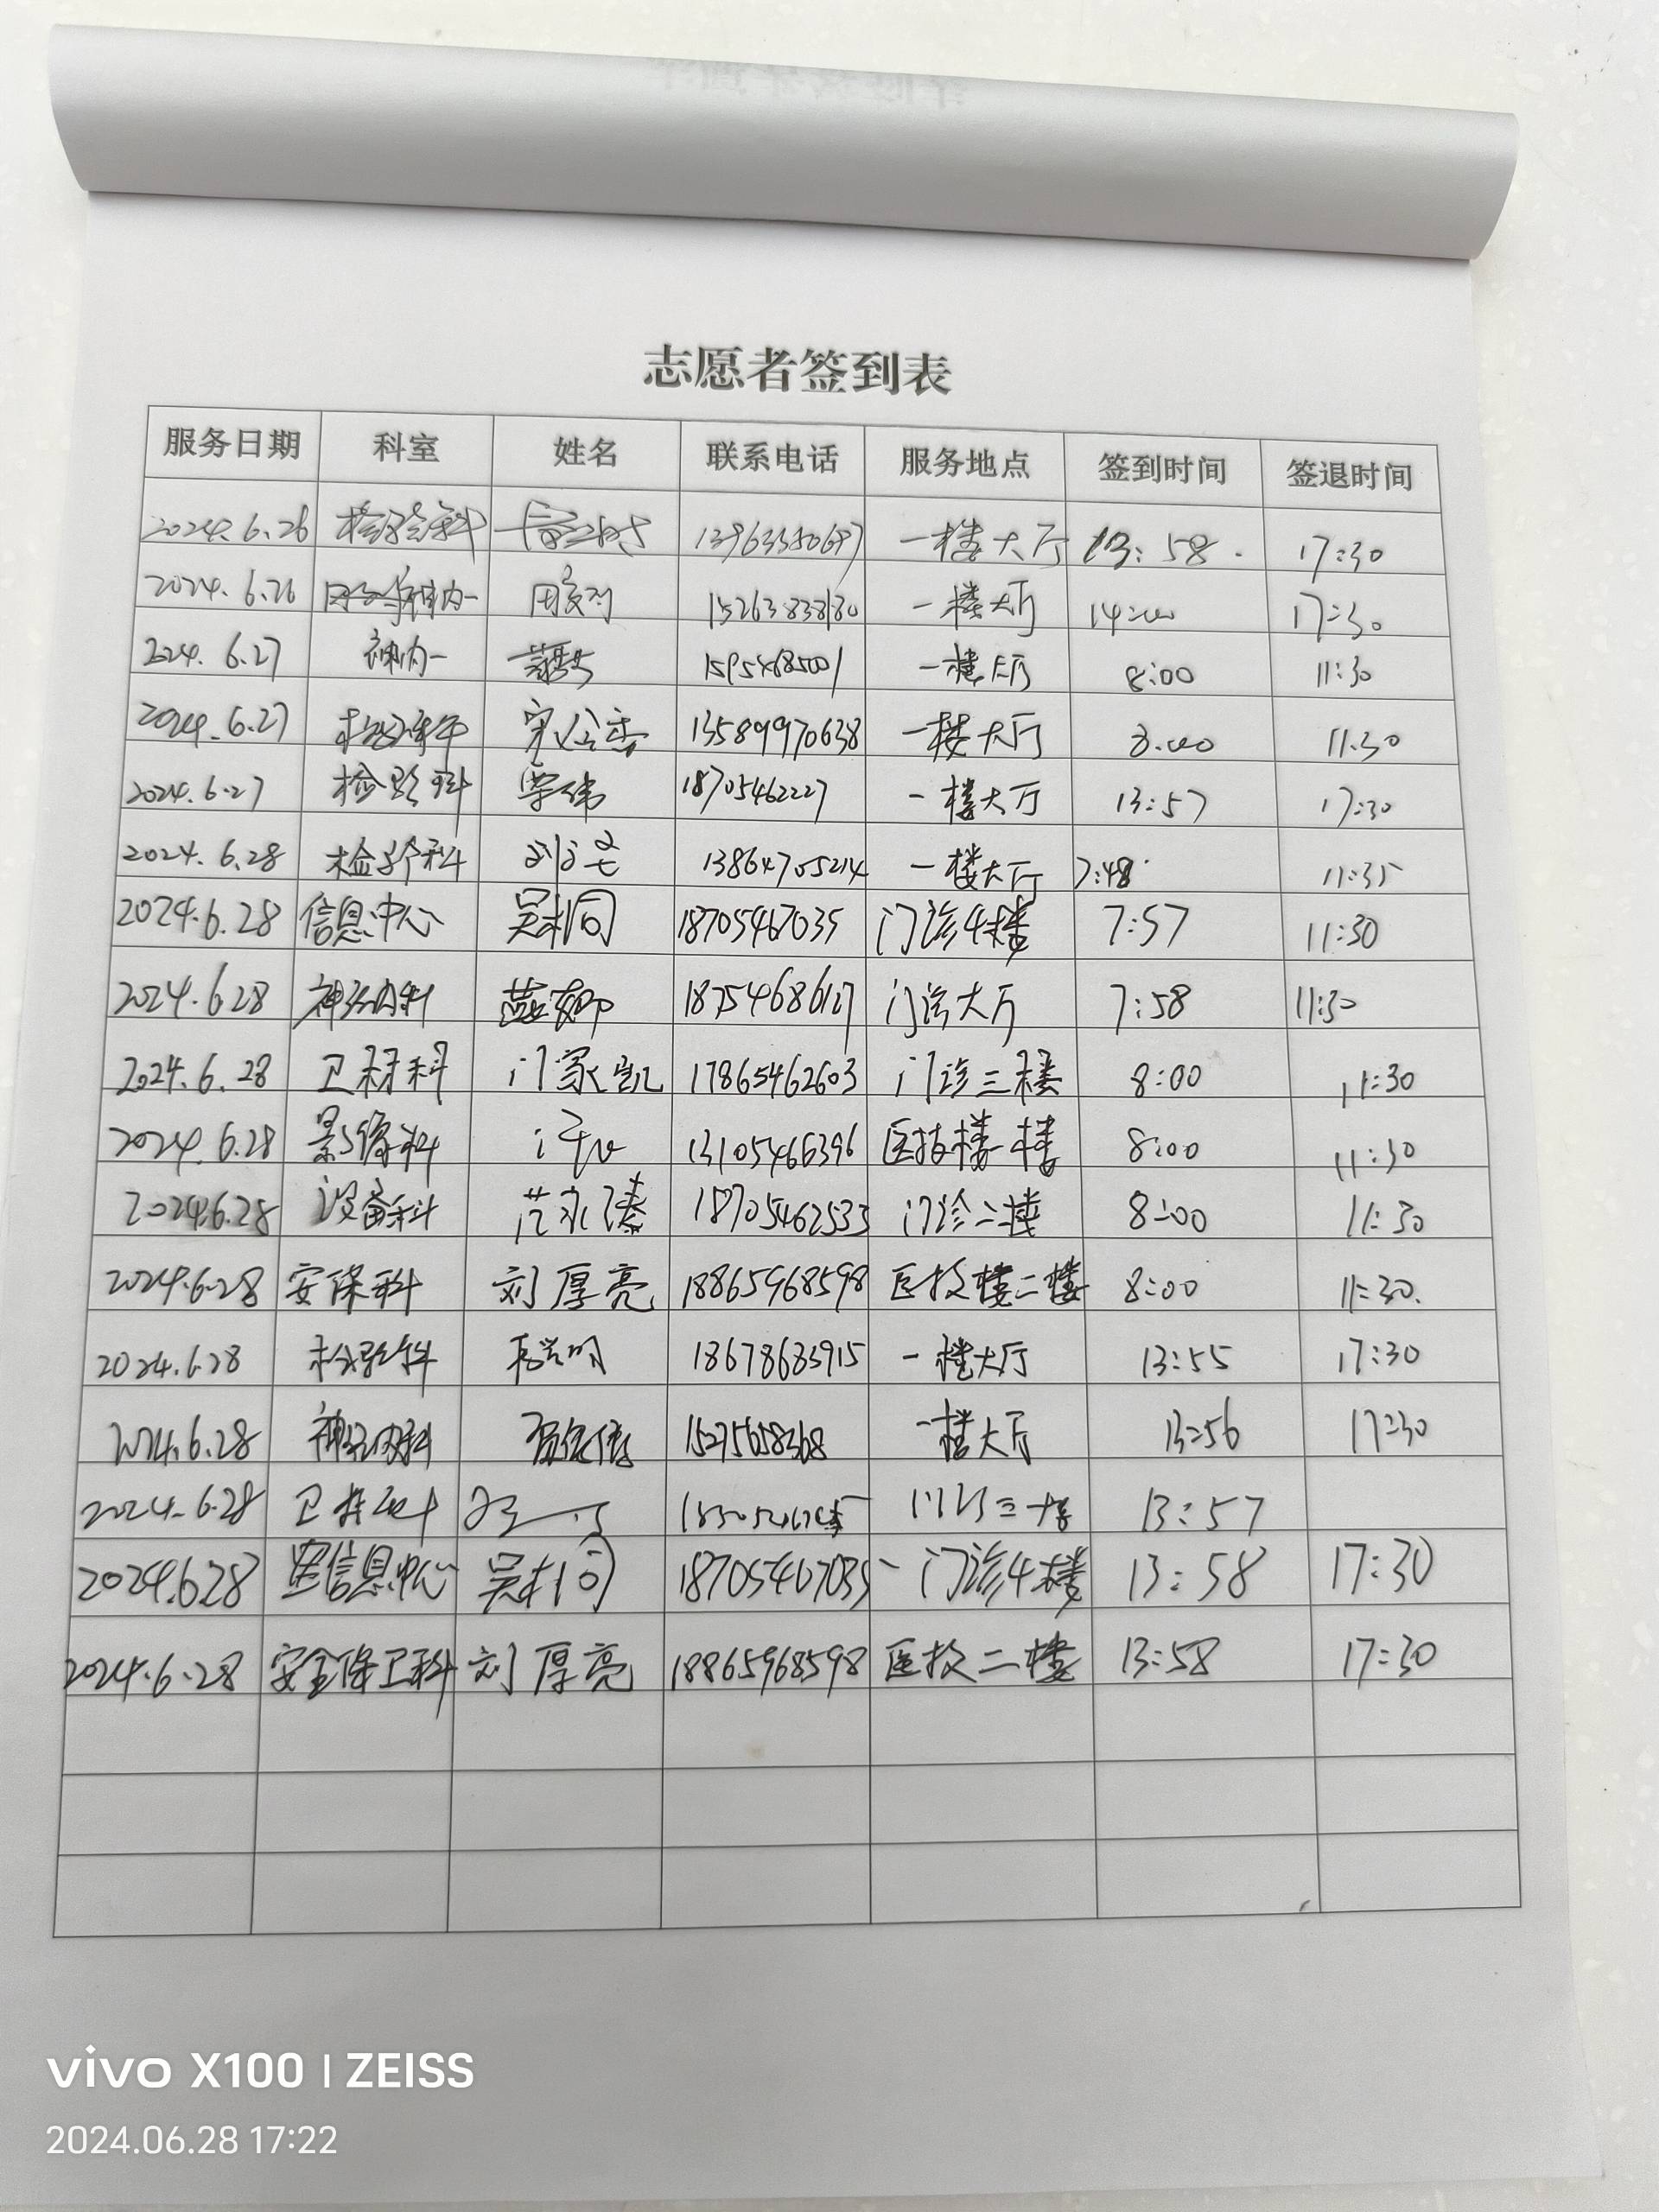 志愿者签到表
服务日期 科室 姓名 联系电话 服务地点 签到时间 签退时间
2024.6.26 检验科 一楼大厅 13:58. 17:30
2024.6.26 神内一 15263838180 一楼大厅 14:00 17:30
2024.6.27 神内一 15954685001 一楼大厅 8:00 11:30
2024.6.27 检验科 13589970638 一楼大厅 8:00 11:30
2024.6.27 检验科 18705462227 一楼大厅 13:57 17:30
2024.6.28 检验科 13864705214 一楼大厅 7:48 11:35
2024.6.28 信息中心 吴桐 18705467035 门诊4楼 7:57 11:30
2024.6.28 神经内科 18754686127 门诊大厅 7:58 11:30
2024.6.28 卫材科 门家凯 17865462603 门诊三楼 8:00 11:30
2024.6.28 影像科 13105466396 医技楼一楼 8:00 11:30
2024.6.28 设备科 范永臻 18705462533 门诊二楼 8:00 11:30
2024.6.28 安保科 刘厚亮 18865968598 医技楼二楼 8:00 11:30.
2024.6.28 检验科 18678683915 一楼大厅 13:55 17:30
2024.6.28 神经内科 15275658368 一楼大厅 13:56 17:30
2024.6.28 卫材科 门诊三楼 13:57
2024.6.28 信息中心 吴桐 18705467035 门诊4楼 13:58 17:30
2024.6.28 安全保卫科 刘厚亮 18865968598 医技二楼 13:58 17:30
vivo X100 | ZEISS
2024.06.28 17:22